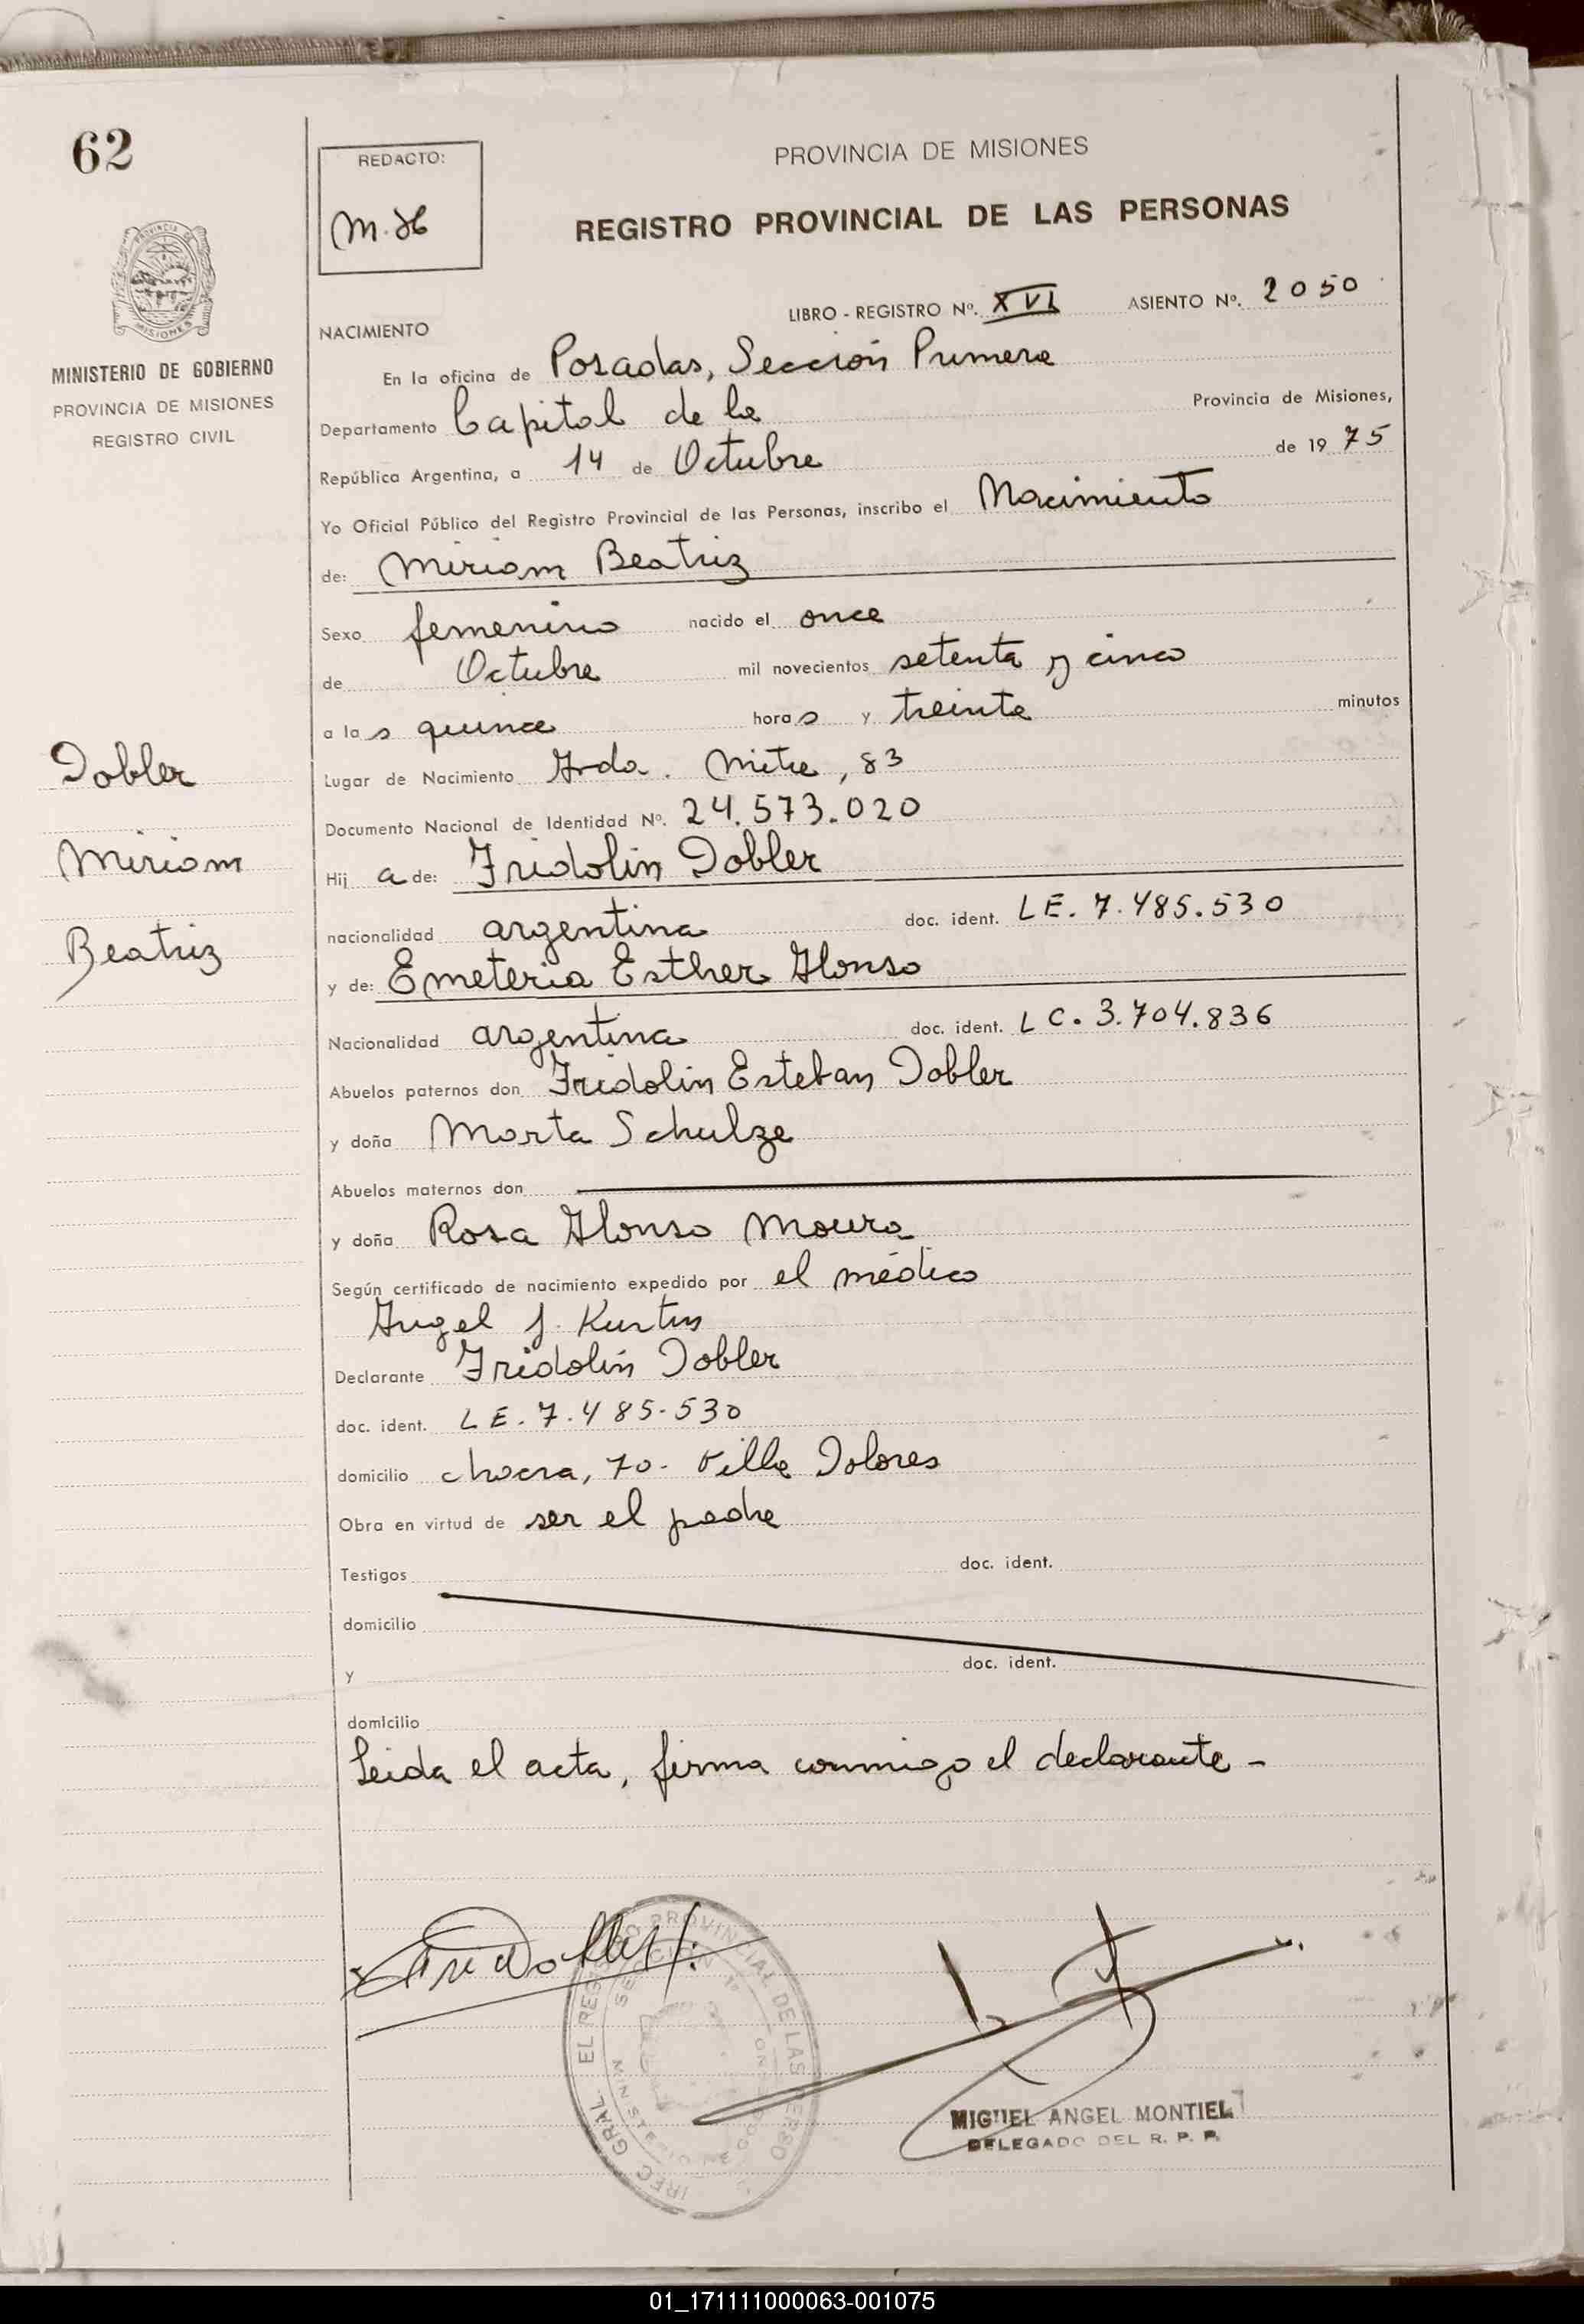 62
REDACTO:
PROVINCIA DE MISIONES
REGISTRO PROVINCIAL DE LAS PERSONAS
PROVINCIA DE
MISIONES
MINISTERIO DE GOBIERNO
PROVINCIA DE MISIONES
REGISTRO CIVIL
LIBRO - REGISTRO Nº. XVI ASIENTO Nº. 2050
NACIMIENTO
En la oficina de Posadas, Sección Primera
Departamento Capital de la Provincia de Misiones,
República Argentina, a 14 de Octubre de 1975
Yo Oficial Público del Registro Provincial de las Personas, inscribo el Nacimiento
de: Miriam Beatriz
Sexo femenino nacido el once
de Octubre mil novecientos setenta y cinco
a las quince horas y treinta minutos
Dobler
Miriam
Beatriz
Lugar de Nacimiento Avda. Mitre, 83
Documento Nacional de Identidad Nº. 24.573.020
Hij a de: Fridolin Dobler
nacionalidad argentina doc. ident. LE. 7.485.530
y de: Emeteria Esther Alonso
Nacionalidad argentina doc. ident. LC. 3.704.836
Abuelos paternos don Fridolin Esteban Dobler
y doña Marta Schulze
Abuelos maternos don
y doña Rosa Alonso Moura
Según certificado de nacimiento expedido por el médico
Angel J. Kurtin
Declarante Fridolin Dobler
doc. ident. LE. 7.485-530
domicilio chacra, 70. Villa Dolores
Obra en virtud de ser el padre
Testigos doc. ident.
domicilio
y doc. ident.
domicilio
Leida el acta, firma conmigo el declarante -
MIGUEL ANGEL MONTIEL
DELEGADO DEL R. P. P.
01_171111000063-001075